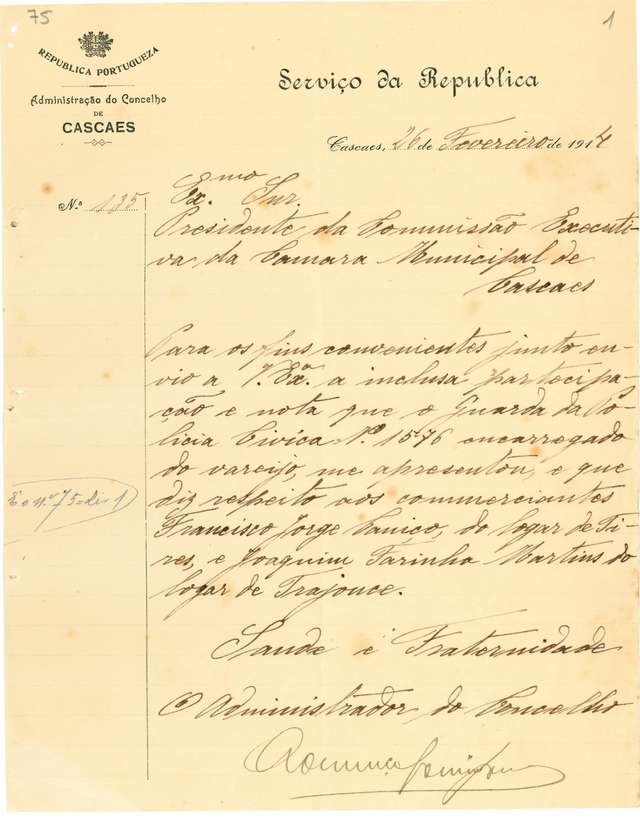 75
1
REPUBLICA PORTUGUEZA
Administração do Concelho
DE
CASCAES
Serviço da Republica
Cascaes, 26 de Fevereiro de 1914
N.º 135
Ex.mo Snr.
Presidente da Commissão Executi-
va da Camara Municipal de
Cascaes
Para os fins convenientes junto en-
vio a V. Ex.ª a inclusa partecipa-
ção e nota que o Guarda da Po-
licia Civica Nº 1576 encarregado
do varejo, me apresentou, e que
diz respeito aos commerciantes
Francisco Jorge Caniço, do logar de Ti-
res, e Joaquim Farinha Martins do
logar de Trajouce.
E o nº 75
Saude e Fraternidade
O Administrador do Concelho